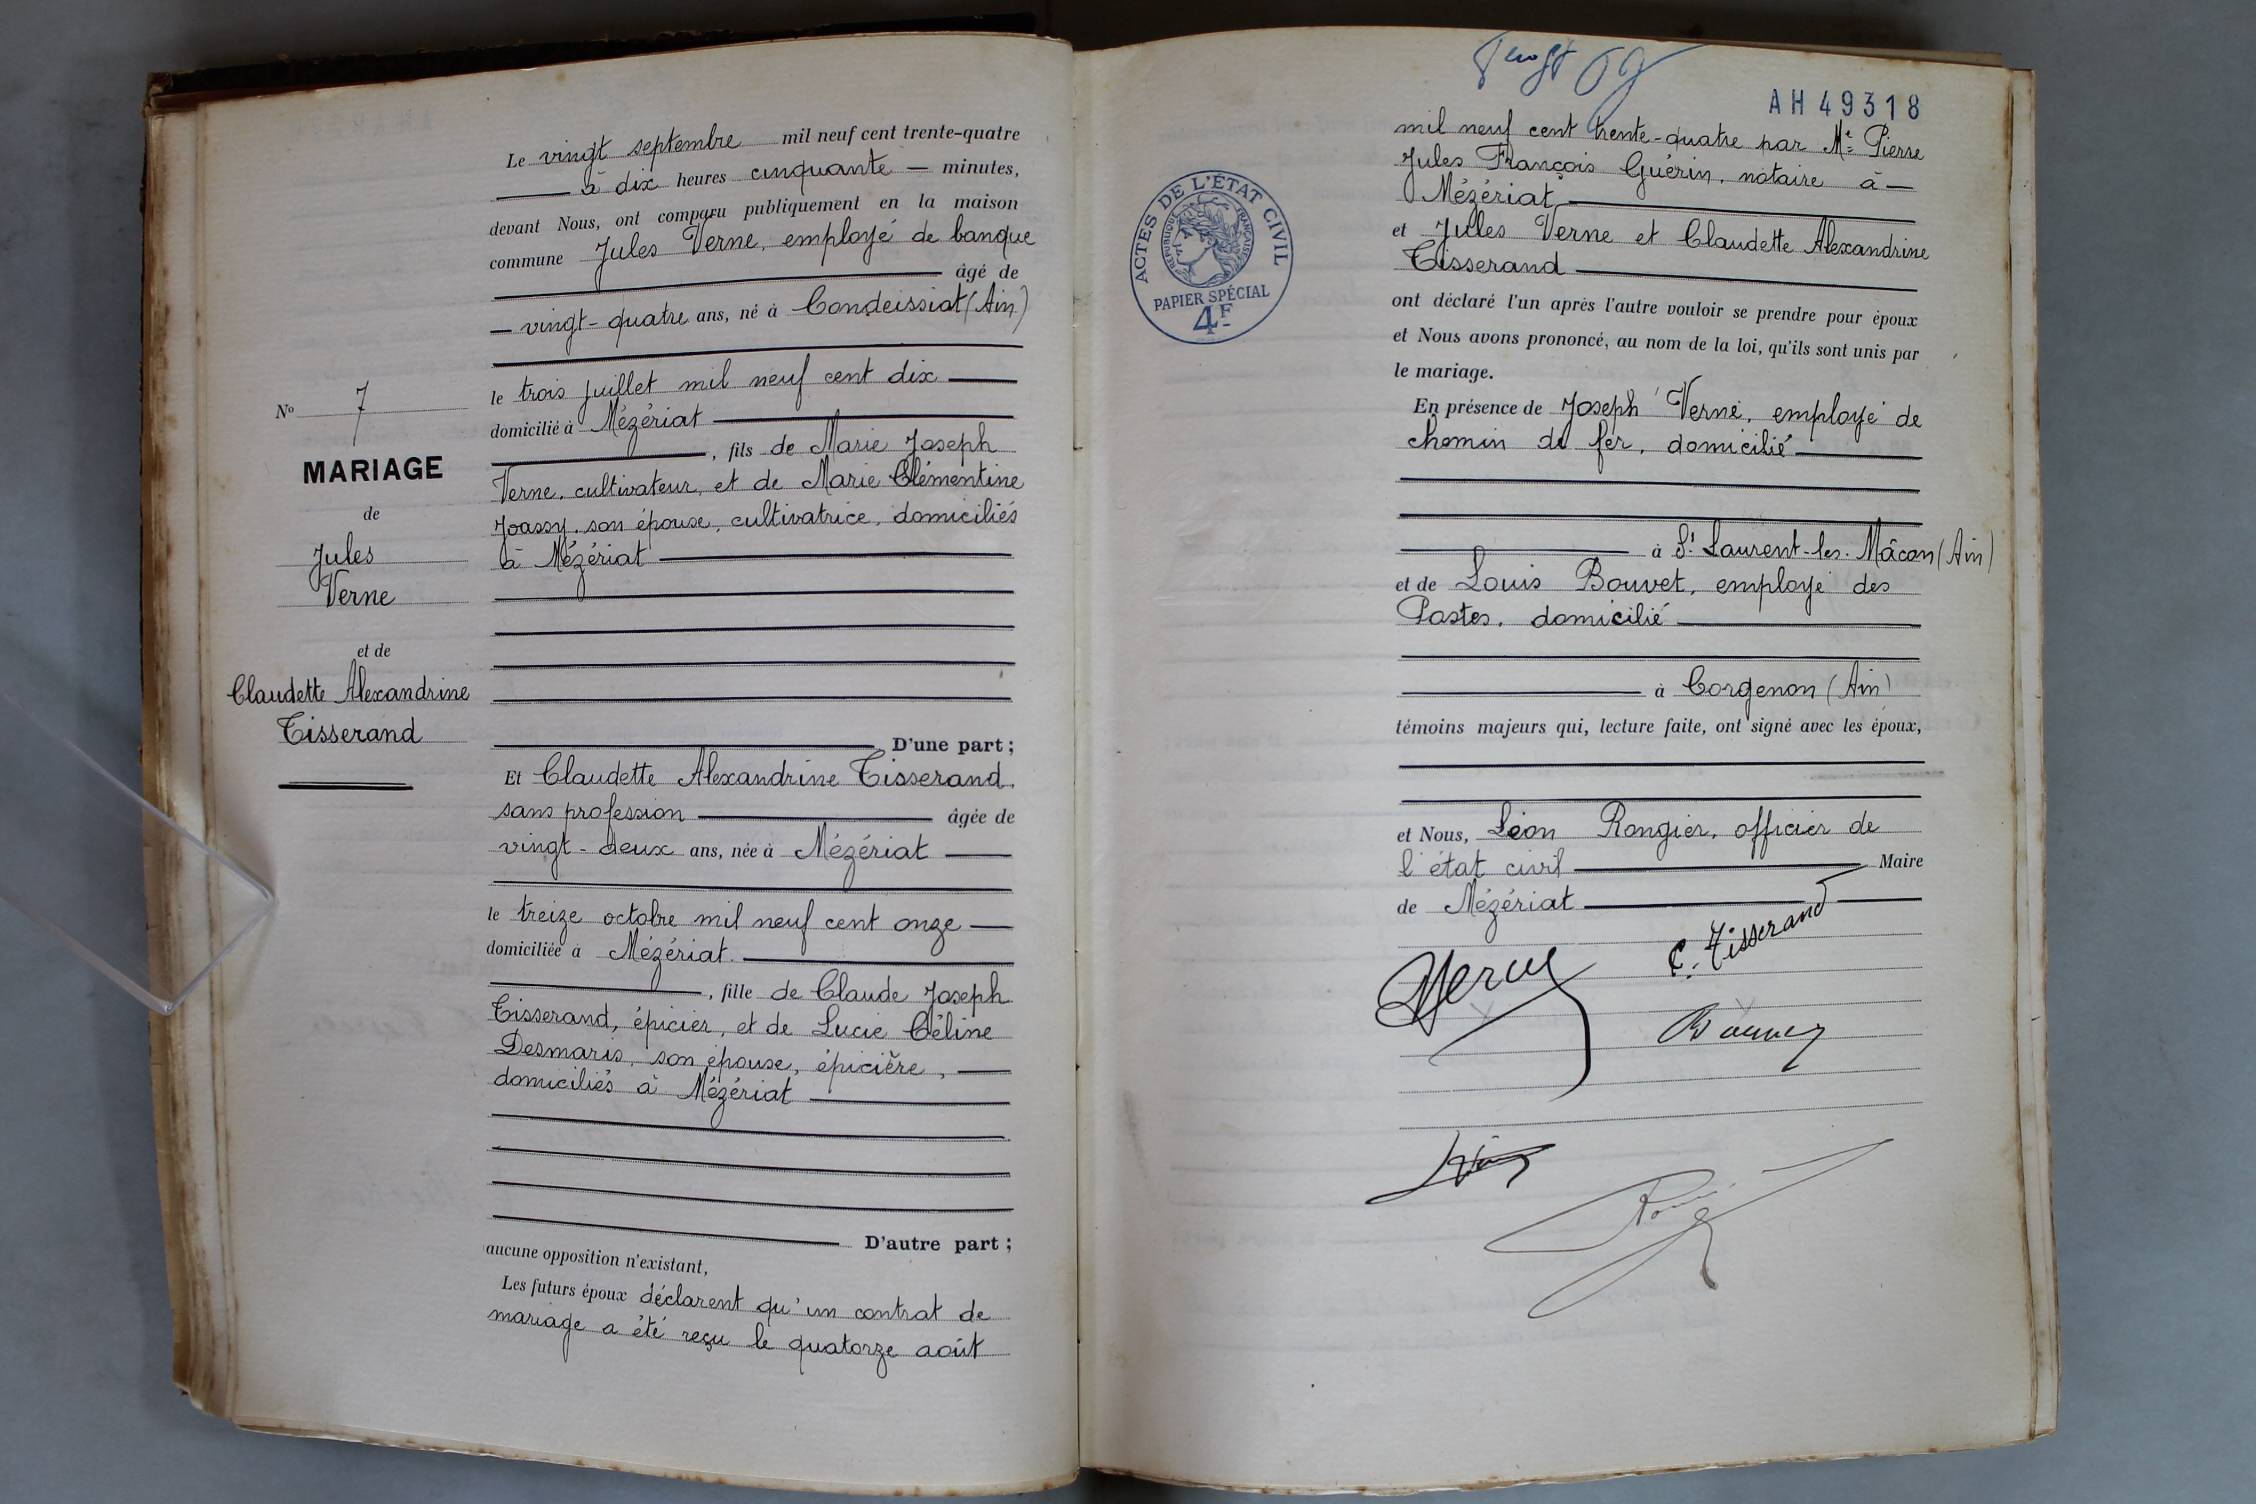 Le vingt septembre mil neuf cent trente-quatre
à dix heures cinquante minutes,
devant Nous, ont comparu publiquement en la maison
commune Jules Verne, employé de banque
âgé de
vingt-quatre ans, né à Condeissiat (Ain)
le trois juillet mil neuf cent dix
domicilié à Mézériat
, fils de Marie Joseph
Verne, cultivateur, et de Marie Clémentine
Joassy, son épouse, cultivatrice, domiciliés
à Mézériat
D'une part ;
Et Claudette Alexandrine Tisserand,
sans profession âgée de
vingt-deux ans, née à Mézériat
le treize octobre mil neuf cent onze
domiciliée à Mézériat
, fille de Claude Joseph
Tisserand, épicier, et de Lucie Céline
Desmaris, son épouse, épicière,
domiciliés à Mézériat
D'autre part ;
aucune opposition n'existant,
Les futurs époux déclarent qu'un contrat de
mariage a été reçu le quatorze août
No 7
MARIAGE
de
Jules
Verne
et de
Claudette Alexandrine
Tisserand
AH 49318
mil neuf cent trente-quatre par Me Pierre
Jules François Guérin, notaire à
Mézériat
et Jules Verne et Claudette Alexandrine
Tisserand
ont déclaré l'un après l'autre vouloir se prendre pour époux
et Nous avons prononcé, au nom de la loi, qu'ils sont unis par
le mariage.
En présence de Joseph Verne, employé de
chemin de fer, domicilié
à St Laurent-les-Mâcon (Ain)
et de Louis Bouvet, employé des
Postes, domicilié
à Corgenon (Ain)
témoins majeurs qui, lecture faite, ont signé avec les époux,
et Nous, Léon Rongier, officier de
l'état civil Maire
de Mézériat
C. Tisserand
ACTES DE L'ÉTAT CIVIL
RÉPUBLIQUE FRANÇAISE
PAPIER SPÉCIAL
4F